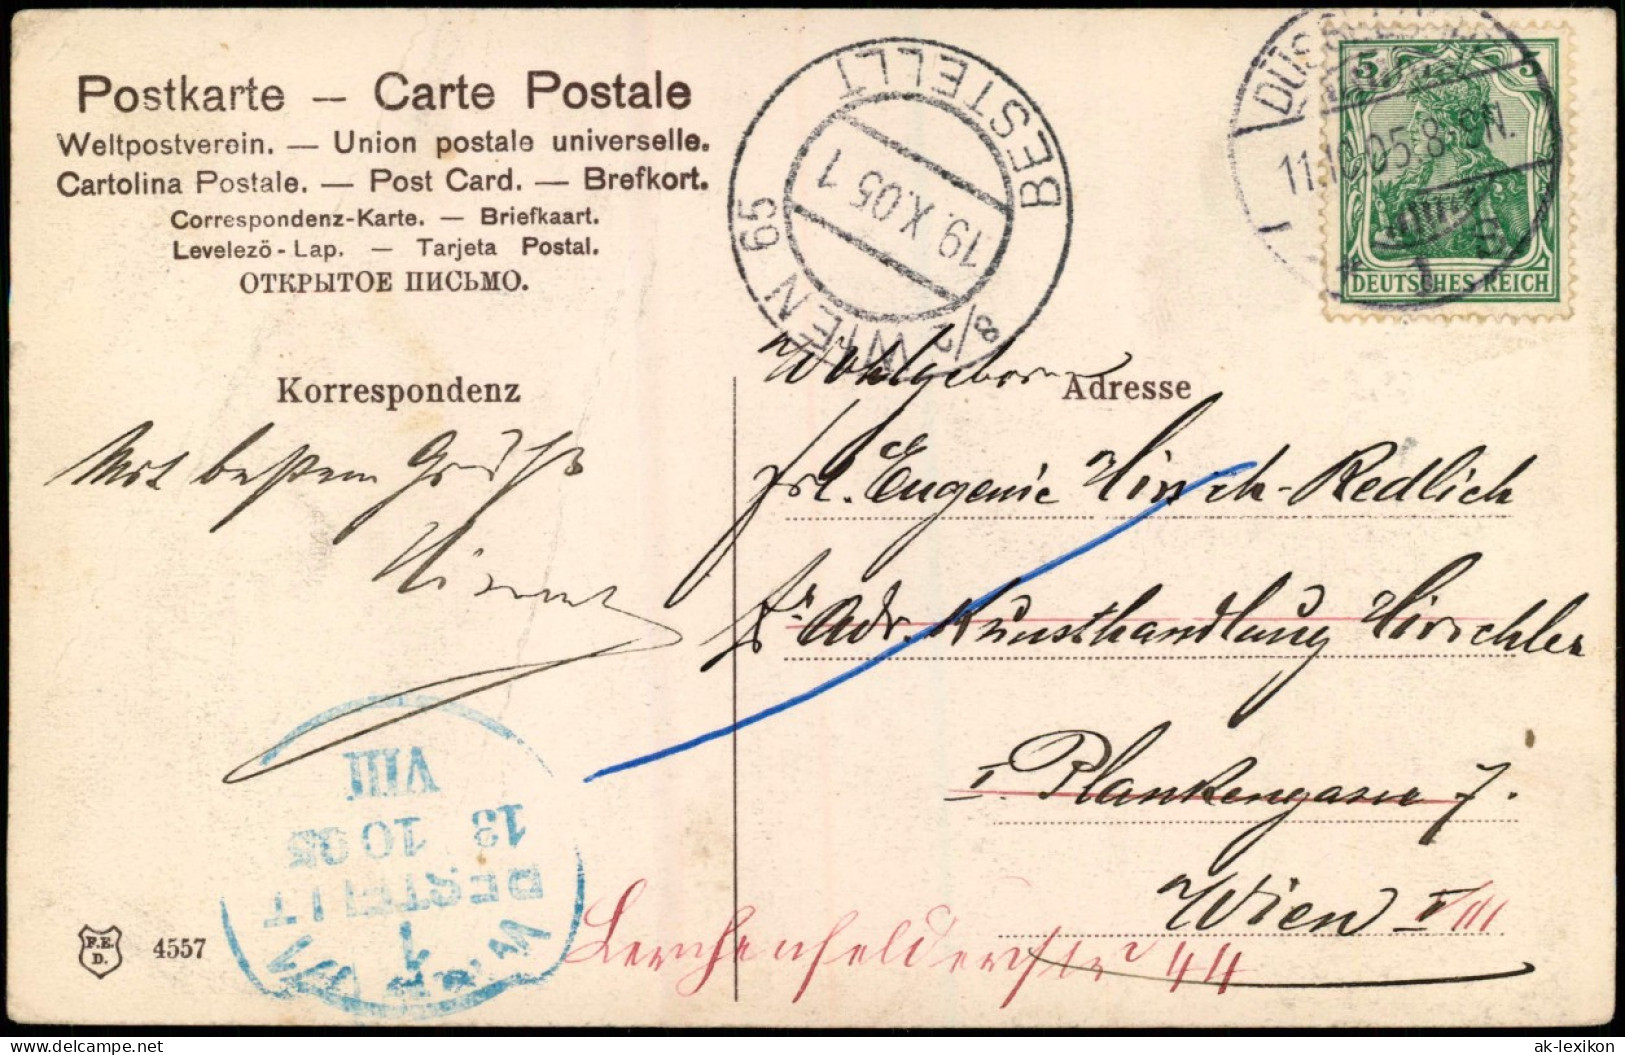 Postkarte — Carte Postale
Weltpostverein. — Union postale universelle.
Cartolina Postale. — Post Card. — Brefkort.
Correspondenz-Karte. — Briefkaart.
Levelező-Lap. — Tarjeta Postal.
ОТКРЫТОЕ ПИСЬМО.
BESTELLT
19.X.05 1
8/2 WIEN 65
11.10.05.8-9N.
5 5
DEUTSCHES REICH
Korrespondenz
Adresse
Mit bestem Gruß
Wohlgeboren
Frl. Eugenie Hirsch-Redlich
Adr. Kunsthandlung Hirschler
I. Plankengasse 7.
Wien I/VIII
Lerchenfelderstr 44
VIII
13
10 05
BESTELLT
1
WIEN
F.E.
D.
4557
delcampe.net
ak-lexikon